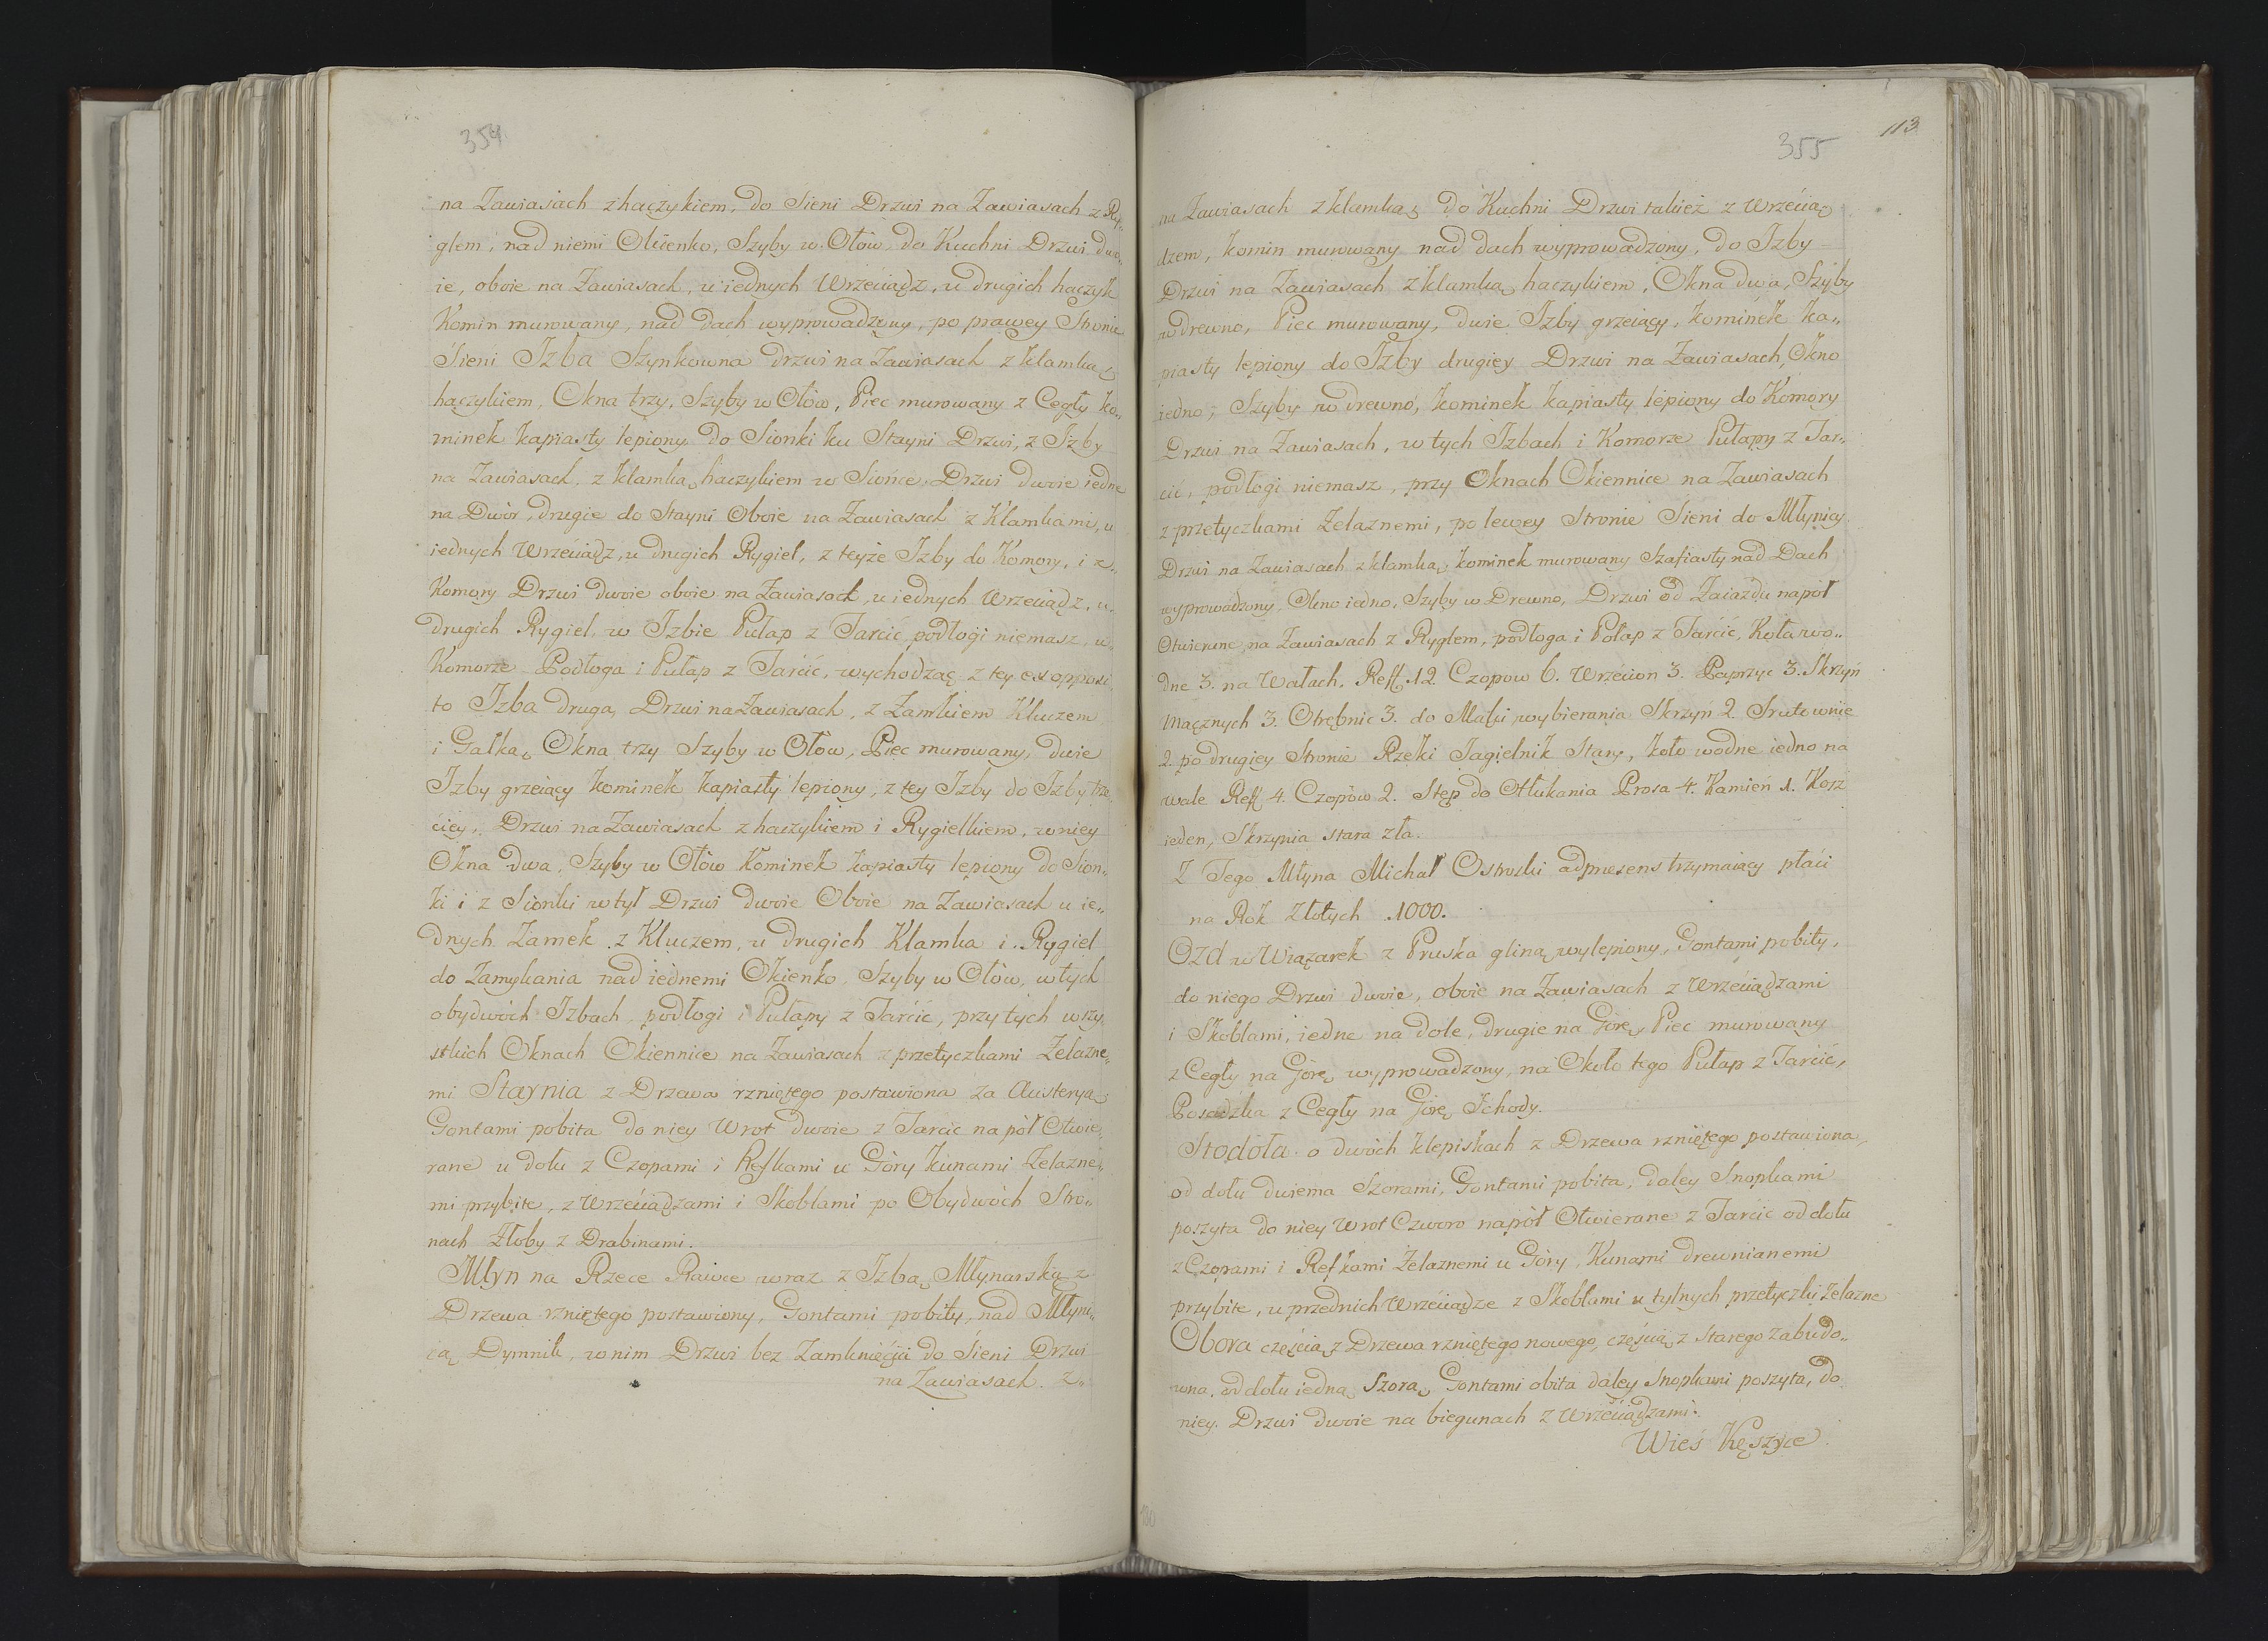 354
na Zawiasach z haczykiem, do Sieni Drzwi na Zawiasach z Ry„
glem, nad niemi Okienko, Szyby w Ołów, do Kuchni Drzwi dwo„
ie, oboie na Zawiasach, u iednych Wrzeciądz, u drugich haczyk
Komin murowany, nad dach wyprowadzony, po prawey Stronie
Sieni Izba Szynkowna drzwi na Zawiasach z klamką
haczykiem, Okna trzy, Szyby w Ołów, Piec murowany z Cegły ko„
minek kapiasty lepiony do Sionki ku Stayni Drzwi, z Izby
na Zawiasach, z klamką haczykiem w Sionce, Drzwi dwoie iedne
na Dwór, drugie do Stayni Oboie na Zawiasach z Klamkami, u
iednych Wrzeciądz, u drugich Rygiel, z teyże Izby do Komory, i z„
Komory Drzwi dwoie oboie na Zawiasach, u iednych Wrzeciądz, u„
drugich Rygiel, w Izbie Pułap z Tarcic, podłogi niemasz, w„
Komorze Podłoga i Pułap z Tarcic, wychodząc z tey ex opposi„
to Izba druga, Drzwi na Zawiasach, z Zamkiem Kluczem
i Gałką, Okna trzy Szyby w Ołów, Piec murowany, dwie
Izby grzeiący kominek kapiasty lepiony, z tey Izby do Izby trze„
ciey, Drzwi na Zawiasach z haczykiem i Rygielkiem, w niey
Okna dwa, Szyby w Ołów Kominek kapiasty lepiony do Sion„
ki i z Sionki w tył Drzwi dwoie Oboie na Zawiasach u ie„
dnych Zamek z Kluczem, u drugich Klamka i Rygiel
do Zamykania nad iednemi Okienko, Szyby w Ołów, w tych
obydwóch Izbach, podłogi i Pułapy z Tarcic, przy tych wszy„
stkich Oknach Okiennice na Zawiasach z przetyczkami Zelazne„
mi Staynia z Drzewa rzniętego postawiona za Austeryą
Gontami pobita do niey Wrot dwoie z Tarcic na pół Otwie„
rane u dołu z Czopami i Refkami u Góry kunami Zelazne„
mi przybite, z Wrzeciądzami i Skoblami po Obydwóch Stro„
nach Złoby z Drabinami.
Młyn na Rzece Rawce wraz z Izbą Młynarską z
Drzewa rzniętego postawiony, Gontami pobity, nad Młyni„
cą Dymnik, w nim Drzwi bez Zamknięcia do Sieni Drzwi
na Zawiasach. z„
113
355
na Zawiasach z klamką do Kuchni Drzwi takież z Wrzecią„
dzem, komin murowany nad dach wyprowadzony, do Izby
Drzwi na Zawiasach z klamką haczykiem, Okna dwa, Szyby
w drewno, Piec murowany, dwie Izby grzeiący, kominek ka„
piasty lepiony do Izby drugiey Drzwi na Zawiasach, Okno
iedno, Szyby w drewno, kominek kapiasty lepiony do Komory
Drzwi na Zawiasach, w tych Izbach i Komorze Pułapy z Tar„
cic, podłogi niemasz, przy Oknach Okiennice na Zawiasach
z przetyczkami Zelaznemi, po lewey Stronie Sieni do Młynicy
Drzwi na Zawiasach z klamką, kominek murowany Szafiasty nad Dach
wyprowadzony, Okno iedno, Szyby w Drewno, Drzwi od Zaiazdu napół
Otwierane na Zawiasach z Ryglem, podłoga i Połap z Tarcic, Koła wo„
dne 3. na Wałach, Reff 12. Czopow 6. Wrzecion 3. Paprzyc 3. Skrzyń
Mącznych 3. Otrębnic 3. do Mąki wybierania Skrzyń 2. Srutownie
2. po drugiey Stronie Rzeki Jagielnik Stary, koło wodne iedno na
wale Reff 4. Czopów 2. Stęp do Otłukania Prosa 4. Kamień 1. Kosz
ieden, Skrzynia stara zła.
Z Tego Młyna Michał Ostroski adpresens trzymaiący płaci
na Rok złotych 1000.
Ozd w Wiązarek z Pruska gliną wylepiony, Gontami pobity,
do niego Drzwi dwoie, oboie na Zawiasach z Wrzeciądzami
i Skoblami, iedne na dole, drugie na Górę, Piec murowany
z Cegły na Górę wyprowadzony, na Około tego Pułap z Tarcic,
Posadzka z Cegły na Górę Schody.
Stodoła o dwóch klepiskach z Drzewa rzniętego postawiona,
od dołu dwiema Szorami, Gontami pobita, daley Snopkami
poszyta do niey Wrot Czworo napół Otwierane z Tarcic od dołu
z Czopami i Refkami Zelaznemi u Góry, Kunami drewnianemi
przybite, u przednich Wrzeciądze z Skoblami u tylnych przetyczki żelazne
Obora częścią z Drzewa rzniętego nowego, częścią z Starego Zabudo„
wna, od dołu iedną Szorą, Gontami obita daley Snopkami poszyta, do
niey Drzwi dwoie na biegunach z Wrzeciądzami.
Wieś Kęszyce